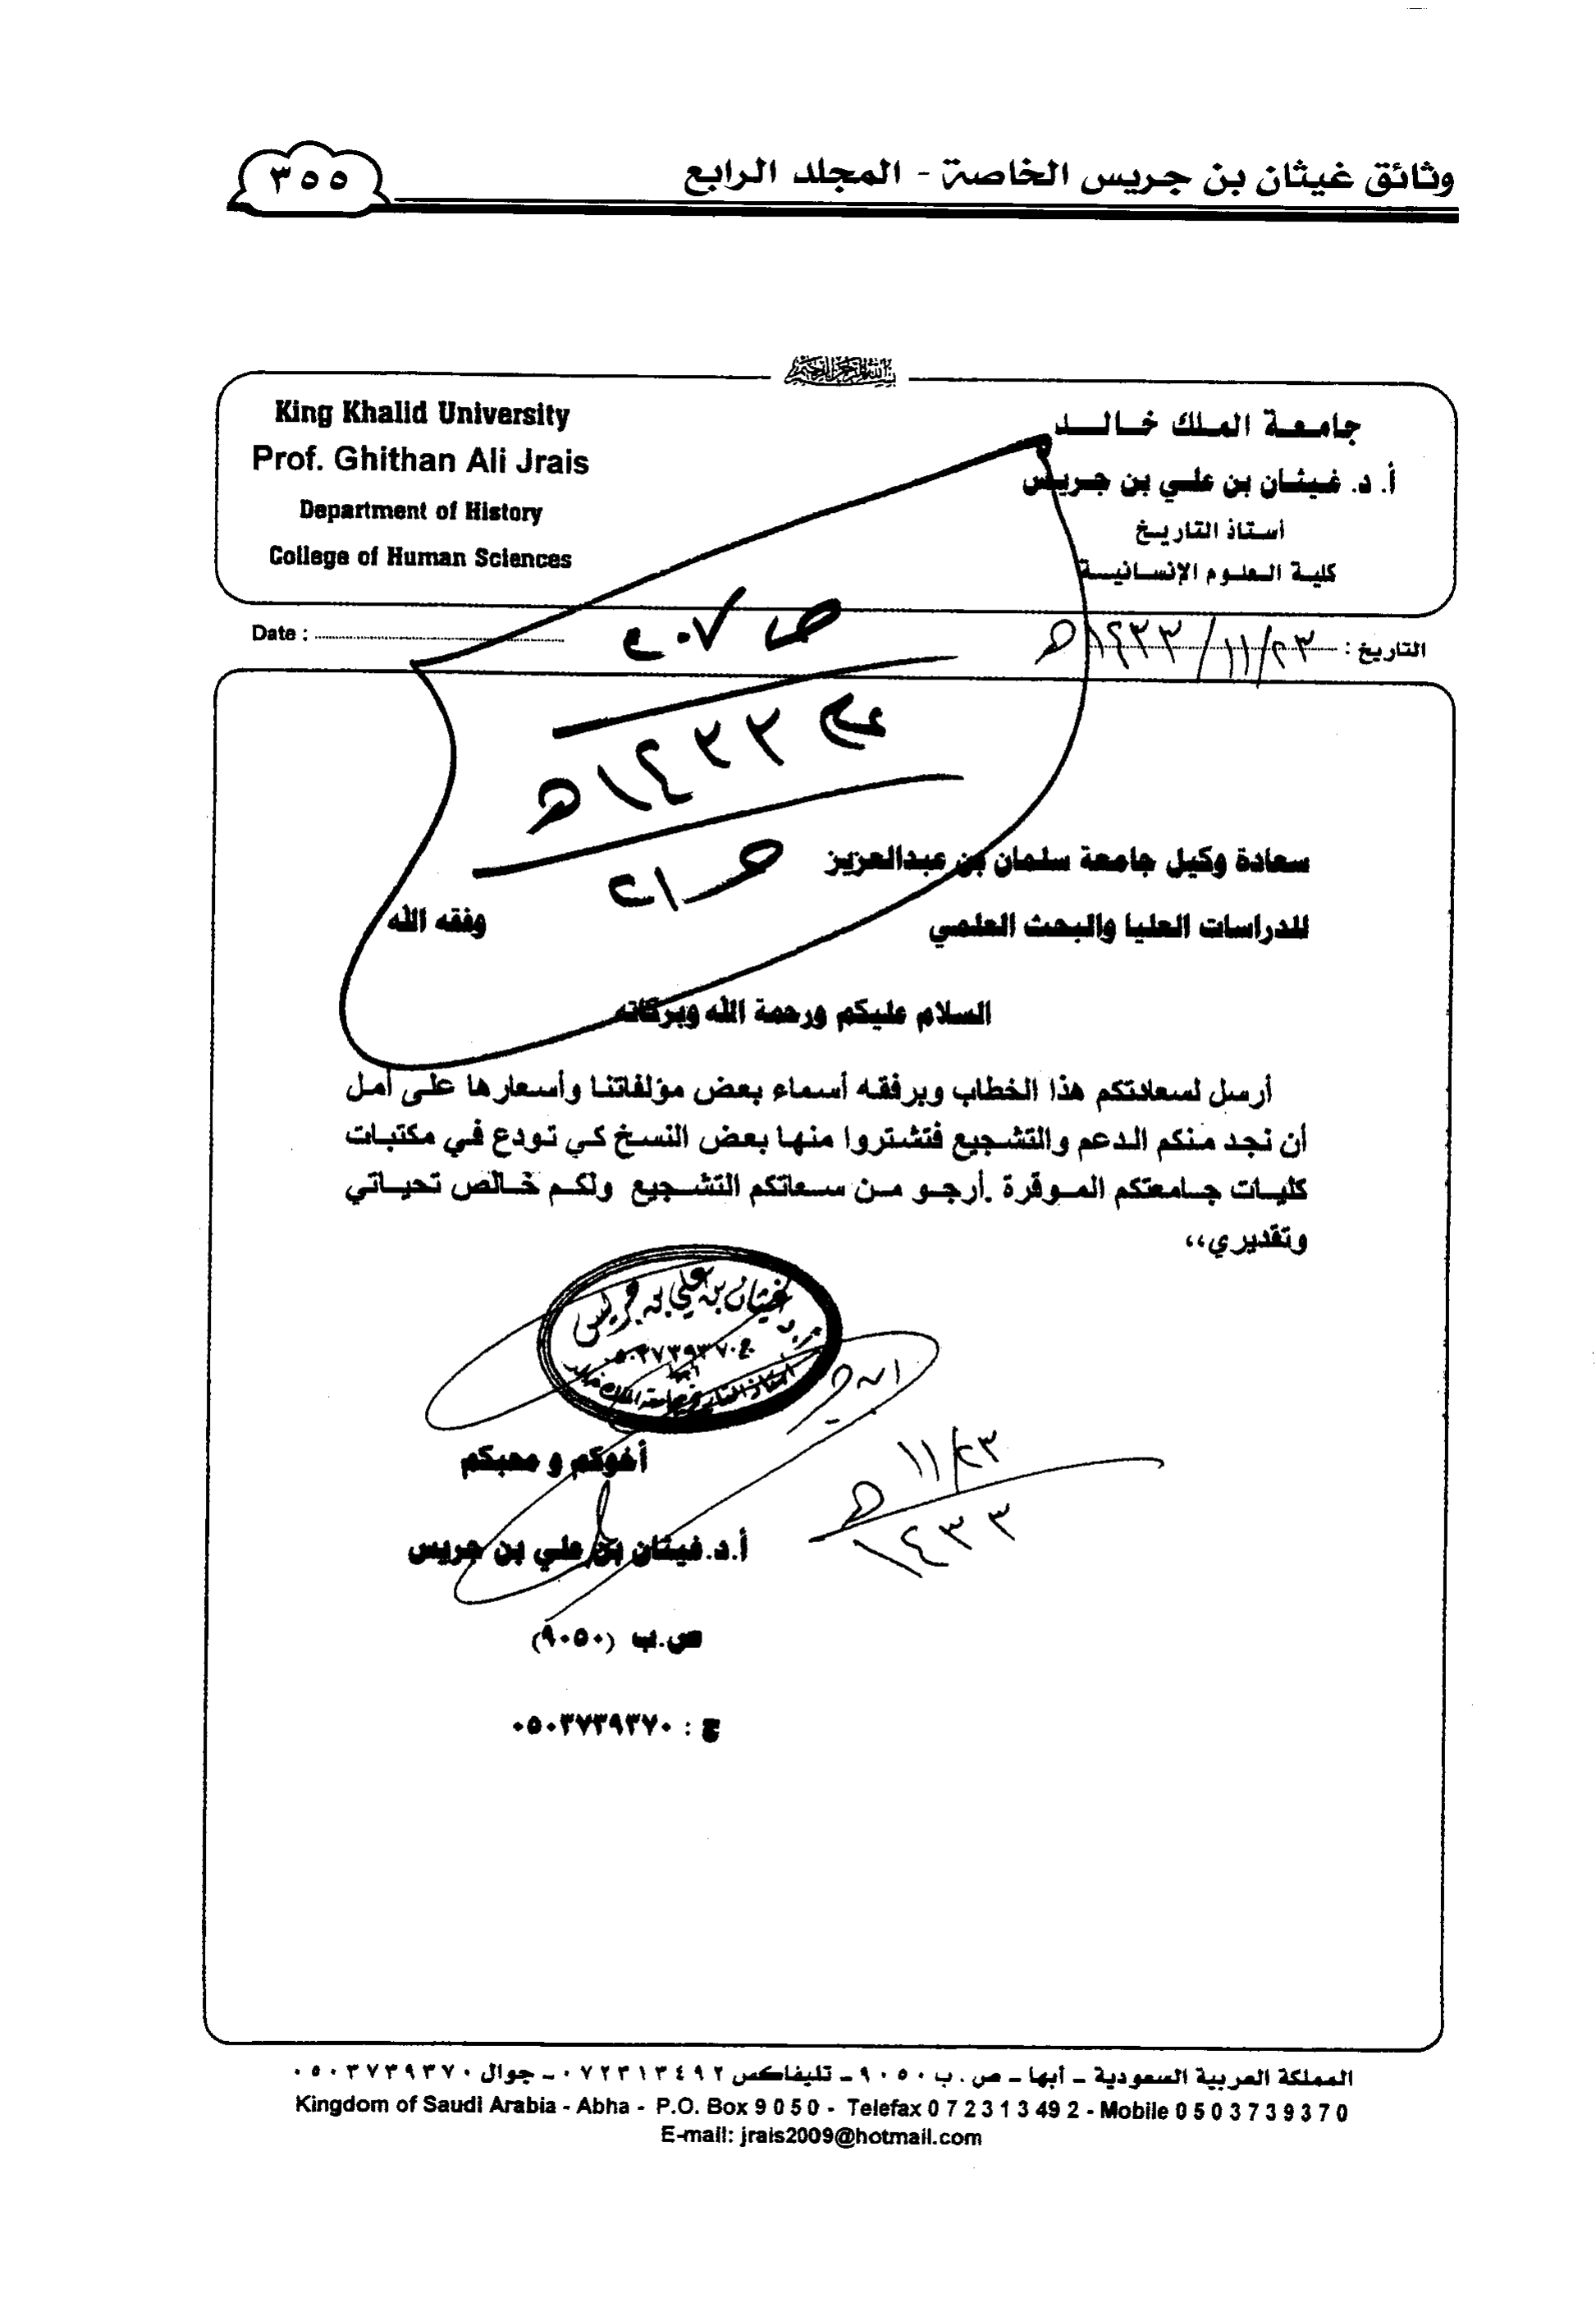 وثائق غيثان بن جريس الخاصة - المجلد الرابع
٣٥٥
بسم الله الرحمن الرحيم
جامعة الملك خالد
أ. د. غيثان بن علي بن جريس
أستاذ التاريخ
كلية العلوم الإنسانية
King Khalid University
Prof. Ghithan Ali Jrais
Department of History
College of Human Sciences
التاريخ : ٢٣/١١/١٤٣٣هـ
Date :
ص
١٤٣٣هـ
سعادة وكيل جامعة سلمان بن عبدالعزيز
للدراسات العليا والبحث العلمي وفقه الله
السلام عليكم ورحمة الله وبركاته
أرسل لسعادتكم هذا الخطاب وبرفقه أسماء بعض مؤلفاتنا وأسعارها على أمل
أن نجد منكم الدعم والتشجيع فتشتروا منها بعض النسخ كي تودع في مكتبات
كليات جامعتكم الموقرة .أرجو من سعاتكم التشجيع ولكم خالص تحياتي
وتقديري،،
غيثان بن علي بن جريس
٠٥٠٣٧٣٩٣٧٠
أستاذ التاريخ جامعة الملك خالد
٢٣/١١
١٤٣٣هـ
أخوكم و محبكم
أ.د.غيثان بن علي بن جريس
ص.ب (٩٠٥٠)
ج : ٠٥٠٣٧٣٩٣٧٠
المملكة العربية السعودية - أبها - ص . ب ٩٠٥٠ - تليفاكس ٠٧٢٣١٣٤٩٢ - جوال ٠٥٠٣٧٣٩٣٧٠
Kingdom of Saudi Arabia - Abha - P.O. Box 9 0 5 0 - Telefax 0 7 2 3 1 3 49 2 - Mobile 0 5 0 3 7 3 9 3 7 0
E-mail: jrais2009@hotmail.com